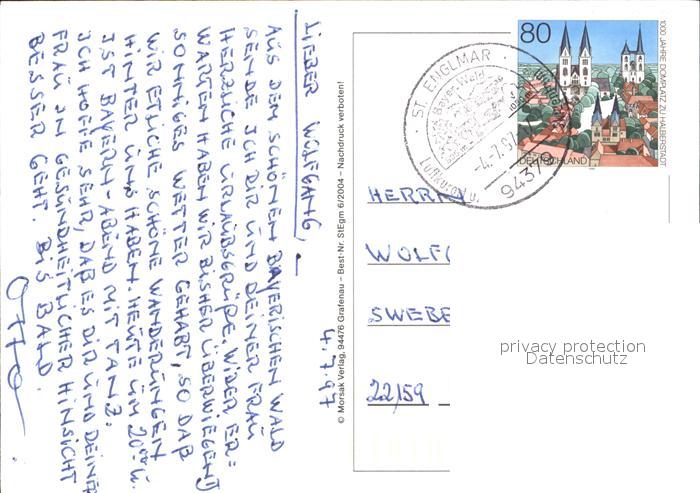 4.7.97
LIEBER WOLFGANG,
AUS DEM SCHÖNEN BAYERISCHEN WALD
SENDE ICH DIR UND DEINER FRAU
HERZLICHE URLAUBSGRÜßE. WIDER ER=
WARTEN HABEN WIR BISHER ÜBERWIEGEND
SONNIGES WETTER GEHABT, SO DAß
WIR ETLICHE SCHÖNE WANDERUNGEN
HINTER UNS HABEN. HEUTE UM 20⁰⁰ U.
IST BAYERN-ABEND MIT TANZ.
ICH HOFFE SEHR, DAß ES DIR UND DEINER
FRAU IN GESUNDHEITLICHER HINSICHT
BESSER GEHT. BIS BALD.
OTTO
© Morsak Verlag, 94476 Grafenau – Best-Nr. StEgm 6/2004 – Nachdruck verboten!
80
1000 JAHRE DOMPLATZ ZU HALBERSTADT
DEUTSCHLAND
ST. ENGLMAR
Bayer. Wald
-4.7.97
9437
Luftkurort
HERRN
WOLFG
SWEBE
22/59
privacy protection
Datenschutz